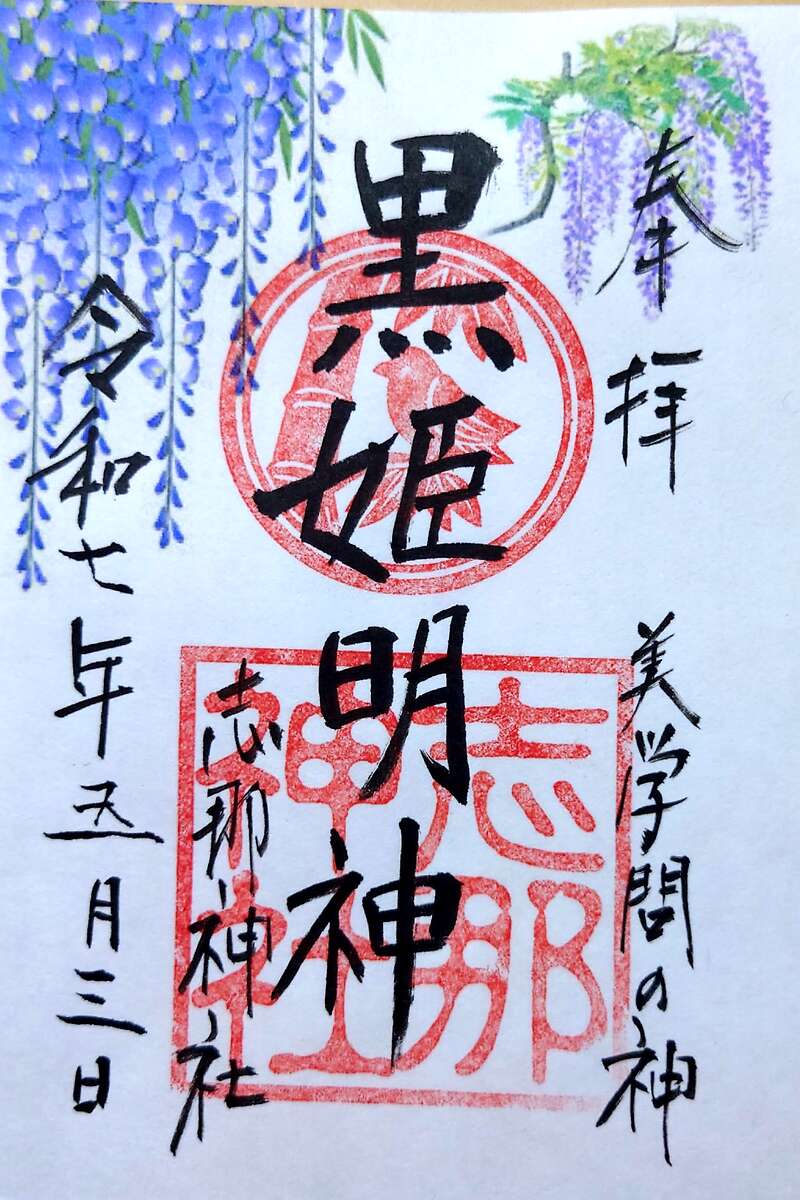 奉拝
美学問の神
黒姫明神
志那神社
志那神社
令和七年五月三日